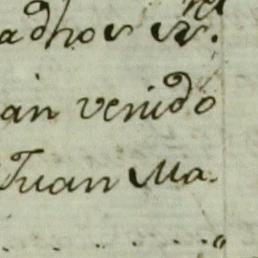 adhos
an venido
Juan Ma